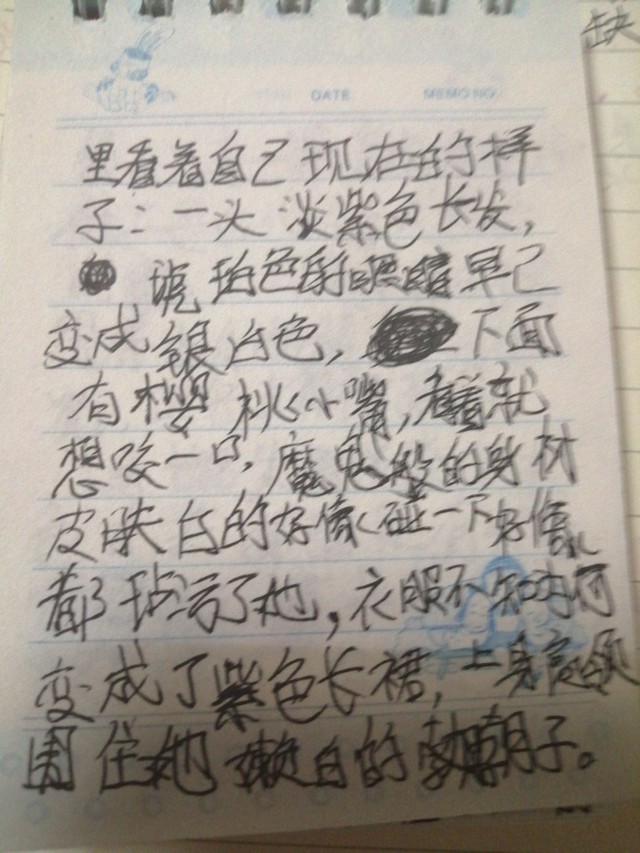 缺
DATE MEMO NO
里看着自己现在的样
子:一头淡紫色长发,
琥珀色的眼睛早已
变成银白色,下面
有樱桃小嘴,看着就
想咬一口,魔鬼般的身材
皮肤白的好像碰一下好像
都玷污了她,衣服不知为何
变成了紫色长裙,上身高领
围住她嫩白的子。